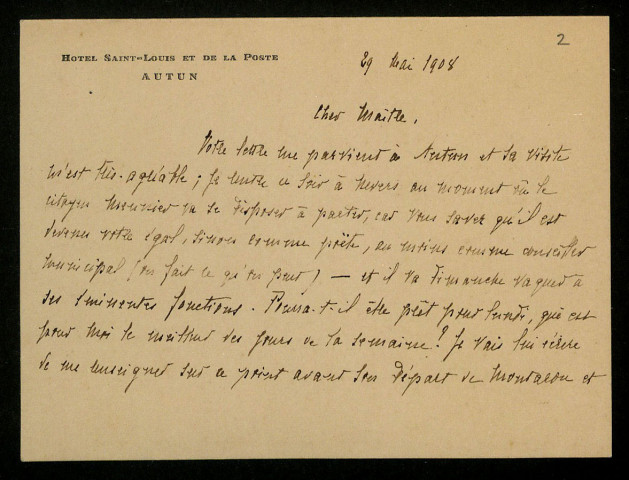 2
HOTEL SAINT-LOUIS ET DE LA POSTE
AUTUN
29 Mai 1908
Cher Maître,
Votre lettre me parvient à Autun et sa visite
m'est très-agréable ; je rentre ce soir à Nevers au moment où le
citoyen Meunier va se disposer à partir, car vous savez qu'il est
devenu votre égal, sinon comme poète, au moins comme conseiller
municipal (on fait ce qu'on peut) — et il va Dimanche vaquer à
ses éminentes fonctions. Pourra-t-il être prêt pour lundi, qui est
pour moi le meilleur des jours de la semaine ? Je vais lui écrire
de me renseigner sur ce point avant son départ de Montaron et